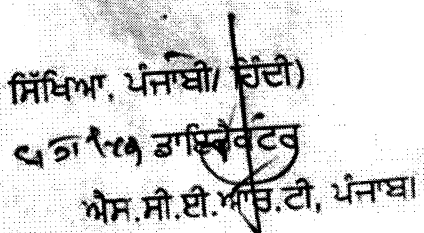 ਸਿੱਖਿਆ, ਪੰਜਾਬੀ/ ਹਿੰਦੀ)
ਡਾਇਰੈਕਟਰ
ਐਸ.ਸੀ.ਈ.ਆਰ.ਟੀ, ਪੰਜਾਬ।